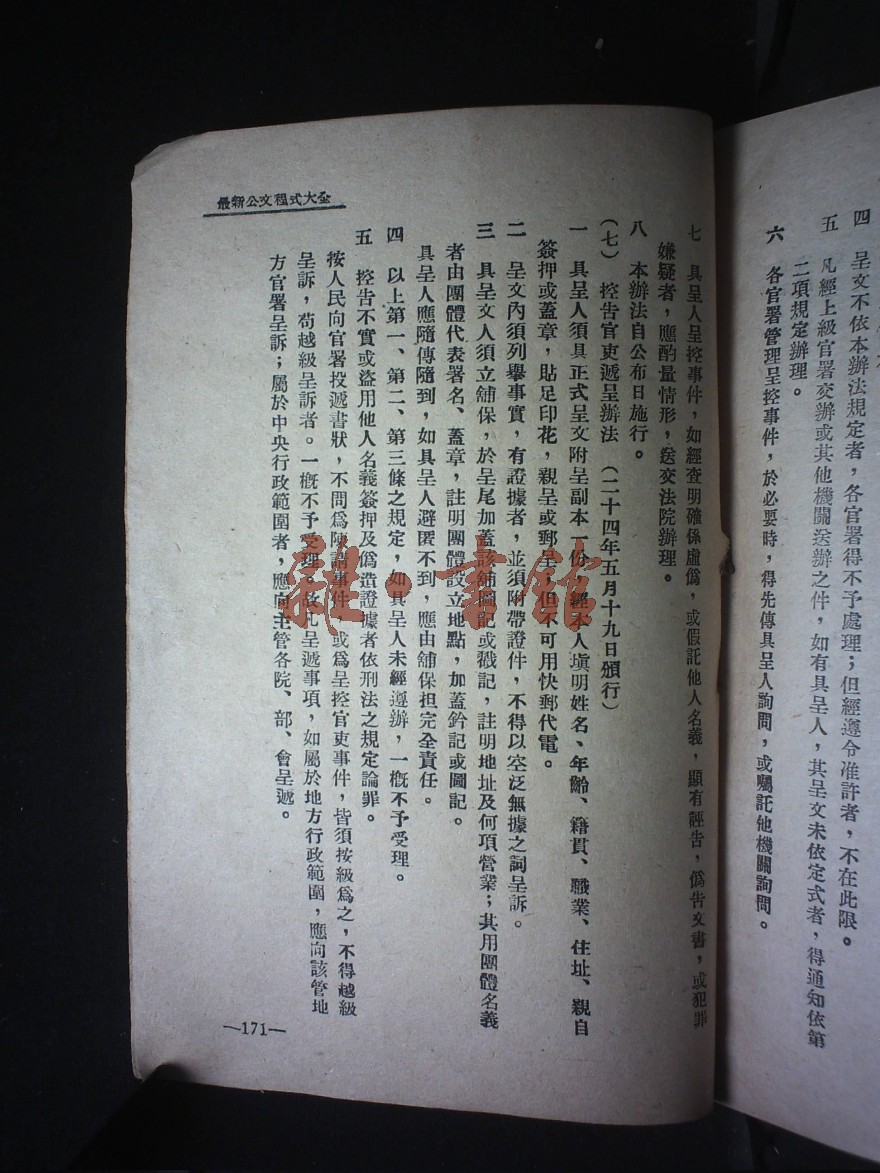 四　呈文不依本辦法規定者，各官署得不予處理；但經遵令准許者，不在此限。
五　凡經上級官署交辦或其他機關送辦之件，如有具呈人，其呈文未依定式者，得通知依第
二項規定辦理。
六　各官署管理呈控事件，於必要時，得先傳具呈人詢問，或囑託他機關詢問。
最新公文程式大全
七　具呈人呈控事件，如經查明確係虛僞，或假託他人名義，顯有誣告，僞告文書，或犯罪
嫌疑者，應酌量情形，送交法院辦理。
八　本辦法自公布日施行。
（七）　控告官吏遞呈辦法　（二十四年五月十九日頒行）
一　具呈人須具正式呈文附呈副本一份，經本人塡明姓名、年齡、籍貫、職業、住址、親自
簽押或蓋章，貼足印花，親呈或郵呈，但不可用快郵代電。
二　呈文內須列舉事實，有證據者，並須附帶證件，不得以空泛無據之詞呈訴。
三　具呈文人須立舖保，於呈尾加蓋該舖圖記或戳記，註明地址及何項營業；其用團體名義
者由團體代表署名、蓋章，註明團體設立地點，加蓋鈐記或圖記。
具呈人應隨傳隨到，如具呈人避匿不到，應由舖保担完全責任。
四　以上第一、第二、第三條之規定，如具呈人未經遵辦，一槪不予受理。
五　控告不實或盜用他人名義簽押及僞造證據者依刑法之規定論罪。
按人民向官署投遞書狀，不問爲陳請事件，或爲呈控官吏事件，皆須按級爲之，不得越級
呈訴，苟越級呈訴者。一槪不予受理。故凡呈遞事項，如屬於地方行政範圍，應向該管地
方官署呈訴；屬於中央行政範圍者，應向主管各院、部、會呈遞。
—171—
雜·書館